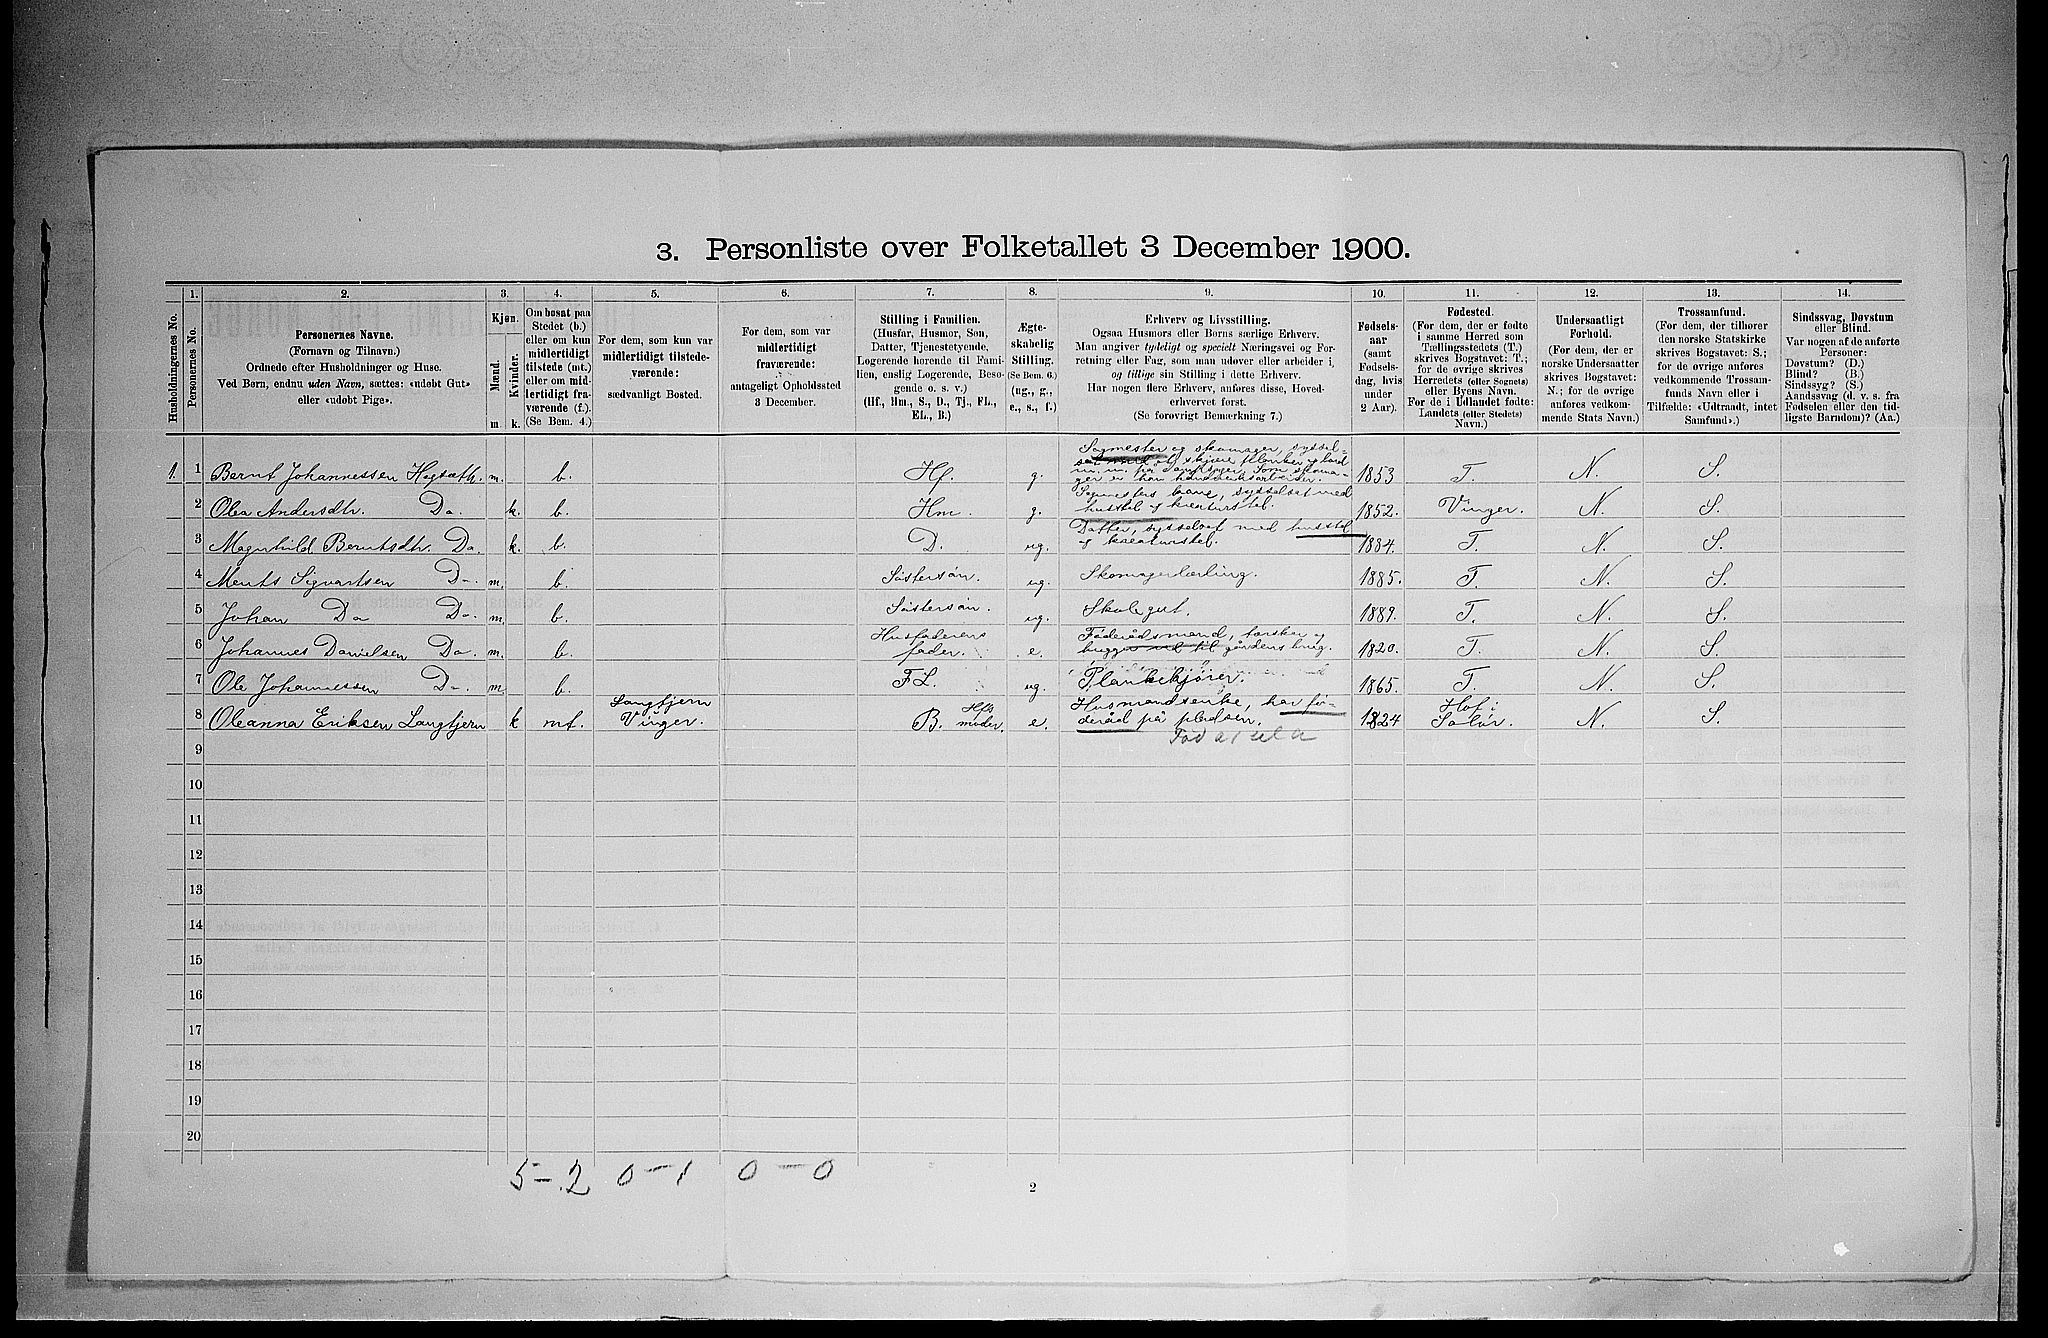 3. Personliste over Folketallet 3 December 1900.
Husholdningernes No.
1.
Personernes No.
2.
Personernes Navne.
(Fornavn og Tilnavn.)
Ordnede efter Husholdninger og Huse.
Ved Børn, endnu uden Navn, sættes: «udøbt Gut»
eller «udøbt Pige».
3.
Kjøn.
Mænd.
Kvinder.
m.
k.
4.
Om bosat paa
Stedet (b.)
eller om kun
midlertidigt
tilstede (mt.)
eller om mid-
lertidigt fra-
værende (f.).
(Se Bem. 4.)
5.
For dem, som kun var
midlertidigt tilstede-
værende:
sædvanligt Bosted.
6.
For dem, som var
midlertidigt
fraværende:
antageligt Opholdssted
3 December.
7.
Stilling i Familien.
(Husfar, Husmor, Søn,
Datter, Tjenestetyende,
Logerende hørende til Fami-
lien, enslig Logerende, Besø-
gende o. s. v.)
(Hf., Hm., S., D., Tj., FL.,
EL., B.)
8.
Ægte-
skabelig
Stilling.
(Se Bem. 6.)
(ug., g.,
e., s., f.)
9.
Erhverv og Livsstilling.
Ogsaa Husmors eller Børns særlige Erhverv.
Man angiver tydeligt og specielt Næringsvei og For-
retning eller Fag, som man udøver eller arbeider i,
og tillige sin Stilling i dette Erhverv.
Har nogen flere Erhverv, anføres disse, Hoved-
erhvervet først.
(Se forøvrigt Bemærkning 7.)
10.
Fødsels-
aar
(samt
Fødsels-
dag, hvis
under
2 Aar).
11.
Fødested.
(For dem, der er fødte
i samme Herred som
Tællingsstedets (T.)
skrives Bogstavet: T.;
for de øvrige skrives
Herredets (eller Sognets)
eller Byens Navn.
For de i Udlandet fødte:
Landets (eller Stedets)
Navn.)
12.
Undersaatligt
Forhold.
(For dem, der er
norske Undersaatter
skrives Bogstavet:
N.; for de øvrige
anføres vedkom-
mende Stats Navn.)
13.
Trossamfund.
(For dem, der tilhører
den norske Statskirke
skrives Bogstavet: S.;
for de øvrige anføres
vedkommende Trossam-
funds Navn eller i
Tilfælde: «Udtraadt, intet
Samfund».)
14.
Sindssvag, Døvstum
eller Blind.
Var nogen af de anførte
Personer:
Døvstum? (D.)
Blind? (B.)
Sindssyg? (S.)
Aandssvag (d. v. s. fra
Fødselen eller den tid-
ligste Barndom)? (Aa.)
1. 1 Bernt Johannessen Hogsæth. m. b. Hf. g. Sagmester og skomager, syssel-
sat med og skjære planker og bord
m. m. på Som skoma-
ger er han håndverksarbeider. 1853 T. N. S.
2 Olea Andersdtr. Do. k. b. Hm. g. Sagmesters kone, sysselsat med
husstel og kreaturstel. 1852. Vinger. N. S.
3 Magnhild Berntsdtr. Do. k. b. D. ug. Datter, sysselsat med husstel
og kreaturstel. 1884. T. N. S.
4 Ments Sigvartsen Do. m. b. Søstersøn. ug. Skomagerlærling. 1885. T. N. S.
5 Johan Do Do. m. b. Søstersøn. ug. Skolegut. 1889. T. N. S.
6 Johannes Danielsen Do. m. b. Husfaderens
fader. e. Føderådsmand, tærsker og
hugger ved til gårdens brug. 1820. T. N. S.
7 Ole Johannessen Do. m. b. FL. ug. Plankekjører. 1865. T. N. S.
8 Oleanna Eriksen Langtjern k mt. Langtjern
Vinger. B. Hfs
moder. e. Husmandsenke, har fø-
deråd på pladsen. 1824 Hof i
Solør. N. S.
9
10
11
12
13
14
15
16
17
18
19
20
5–2 0–1 0–0
2